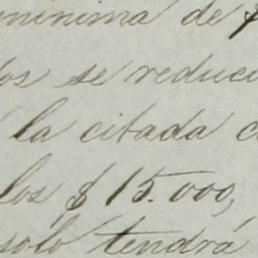 minima de $
los se reduci
la citada c
los $15.000,
sólo tendrá